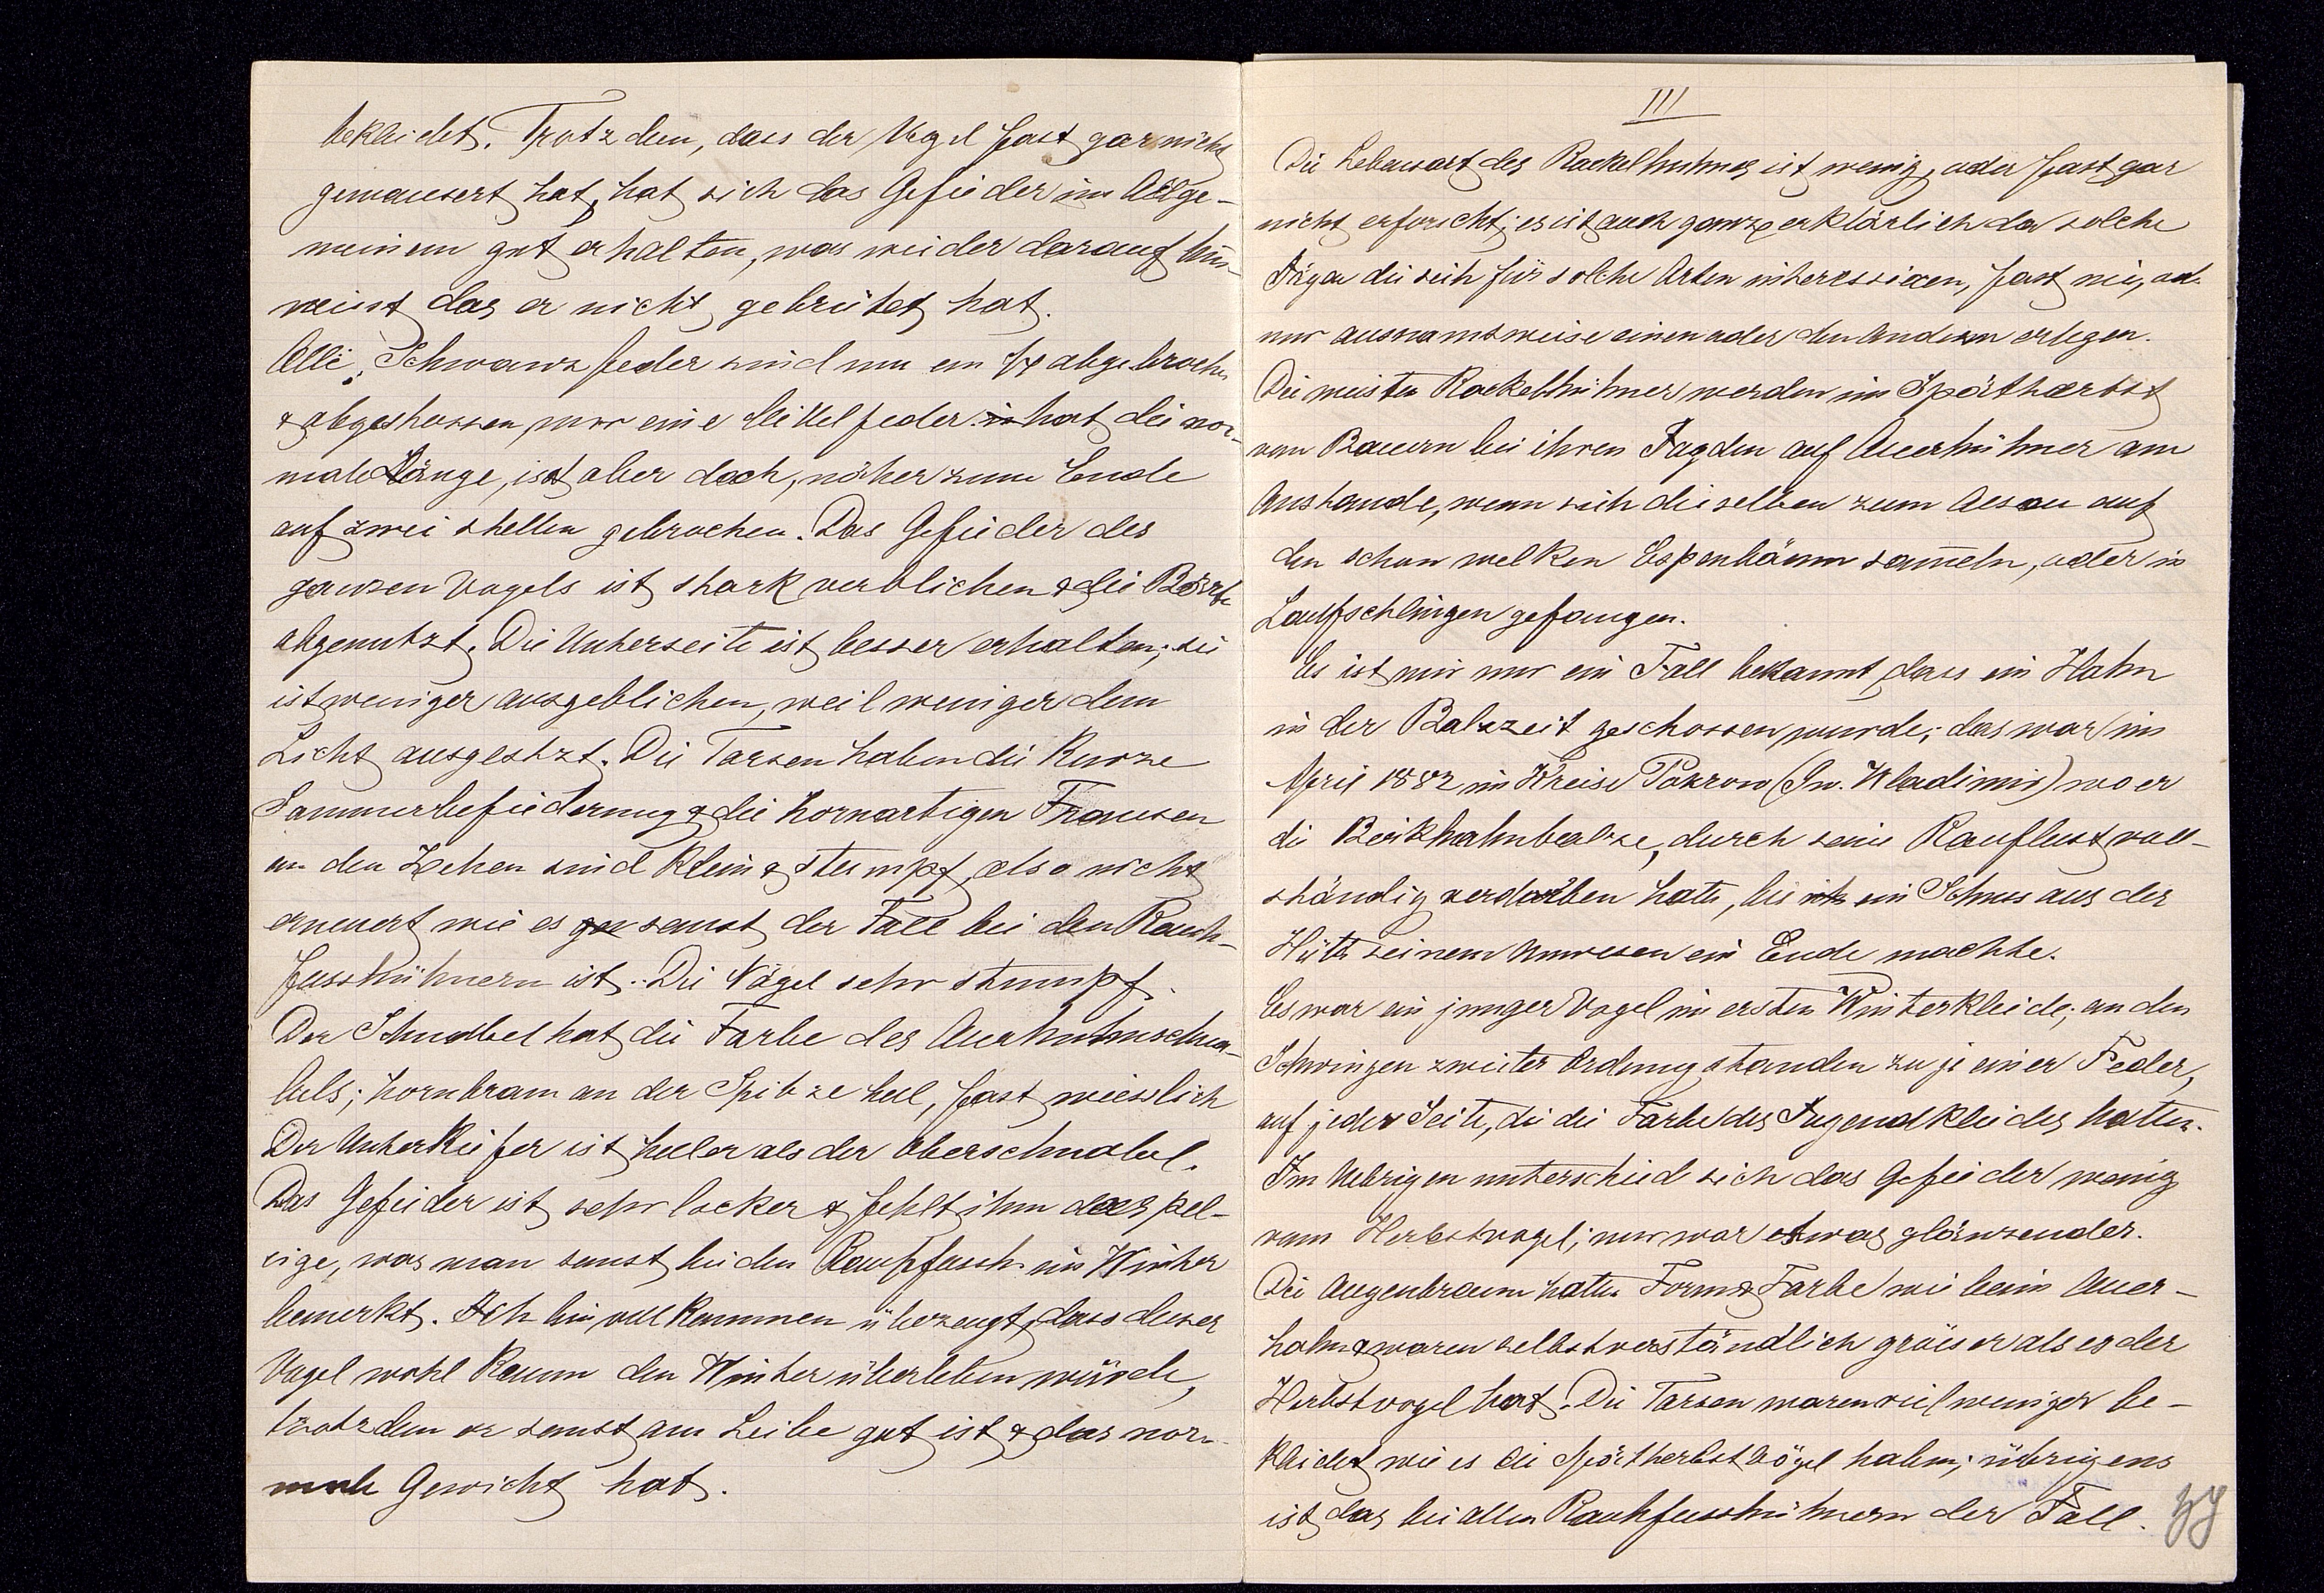 bekleidet. Trotzdem, dass der Vogel fast gar nicht
gemausert hat, hat sich das Gefieder im Allge-
meinem gut erhalten, was wieder darauf hin-
weist das er nicht gebrütet hat.
Alle Schwanzfeder sind nun ein ¼ abgebrochen
& abgeshossen, nur eine Mittelfeder hat die nor-
male Länge, ist aber doch, näher zum Ende
auf zwei stellen gebrochen. Das Gefieder des
ganzen Vogels ist stark verblichen & die Bärte
abgenutzt. Die Unterseite ist besser erhalten; sie
ist weniger ausgeblichen, weil weniger dem
Licht ausgestzt. Die Tarsen haben die Kurze
Sommerbefiederung & die hornartigen Fransen
an den Zehen sind klein & stumpf, also nicht
erneuert wie es sonst der Fall bei den Rauh-
fusshühnern ist. Die Nägel sehr stumpf.
Der Schnabel hat die Farbe des Auerhuhnschna-
bels; hornbraun an der Spitze hell, fast weisslich
Der Unterkiefer ist heller als der Oberschnabel.
Das Gefieder ist sehr locker & fehlt ihm das pel-
zige, was man sonst bei den Rauhfussh. im Winter
bemerkt. Ich bin vollkommen überzeugt, dass dieser
Vogel wohl kaum den Winter überleben würde,
trotzdem er sonst am Leibe gut ist & das nor-
male Gewicht hat.
III
Die Lebensart des Rackelhuhnes ist wenig, oder fast gar
nicht erforscht; es ist auch ganz erklärlich da solche
Jäger die sich für solche Arten interessieren, fast nie, od.
nur ausnamsweise einen oder den Anderen erlegen.
Die meisten Rackelhühner werden im Spätherbst
von Bauern bei ihren Jagden auf Auerhühner am
Anstande, wenn sich dieselben zum Aesen auf
den schon welken Espenbäumen sammeln, oder in
Laufschlingen gefangen.
Es ist mir nur ein Fall bekannt, dass ein Hahn
in der Balzzeit geschossen wurde; das war im
April 1882 im Kreise Pokrow (Gu. Wladimir) wo er
die Birkhahnbalze, durch seine Rauflust voll-
ständig verdorben hatte, bis ein Schuss aus der
Hütte seinem Unwesen ein Ende machte.
Es war ein junger Vogel im ersten Winterkleide; an den
Schwingen zweiter Ordnung standen zu je einer Feder,
auf jeder Seite, die die Farbe des Jugendkleides hatten.
Im Uebrigen unterschied sich das Gefieder wenig
vom Herbstvogel; nur war etwas glänzender.
Die Augenbrauen hatten Form & Farbe wie beim Auer-
hahn & waren selbstverständlich grösser als es der
Herbstvogel hat. Die Tarsen waren viel weniger be-
kleidet wie es die Spätherbstvögel haben; übrigens
ist das bei allen Rauhfusshühnern der Fall.